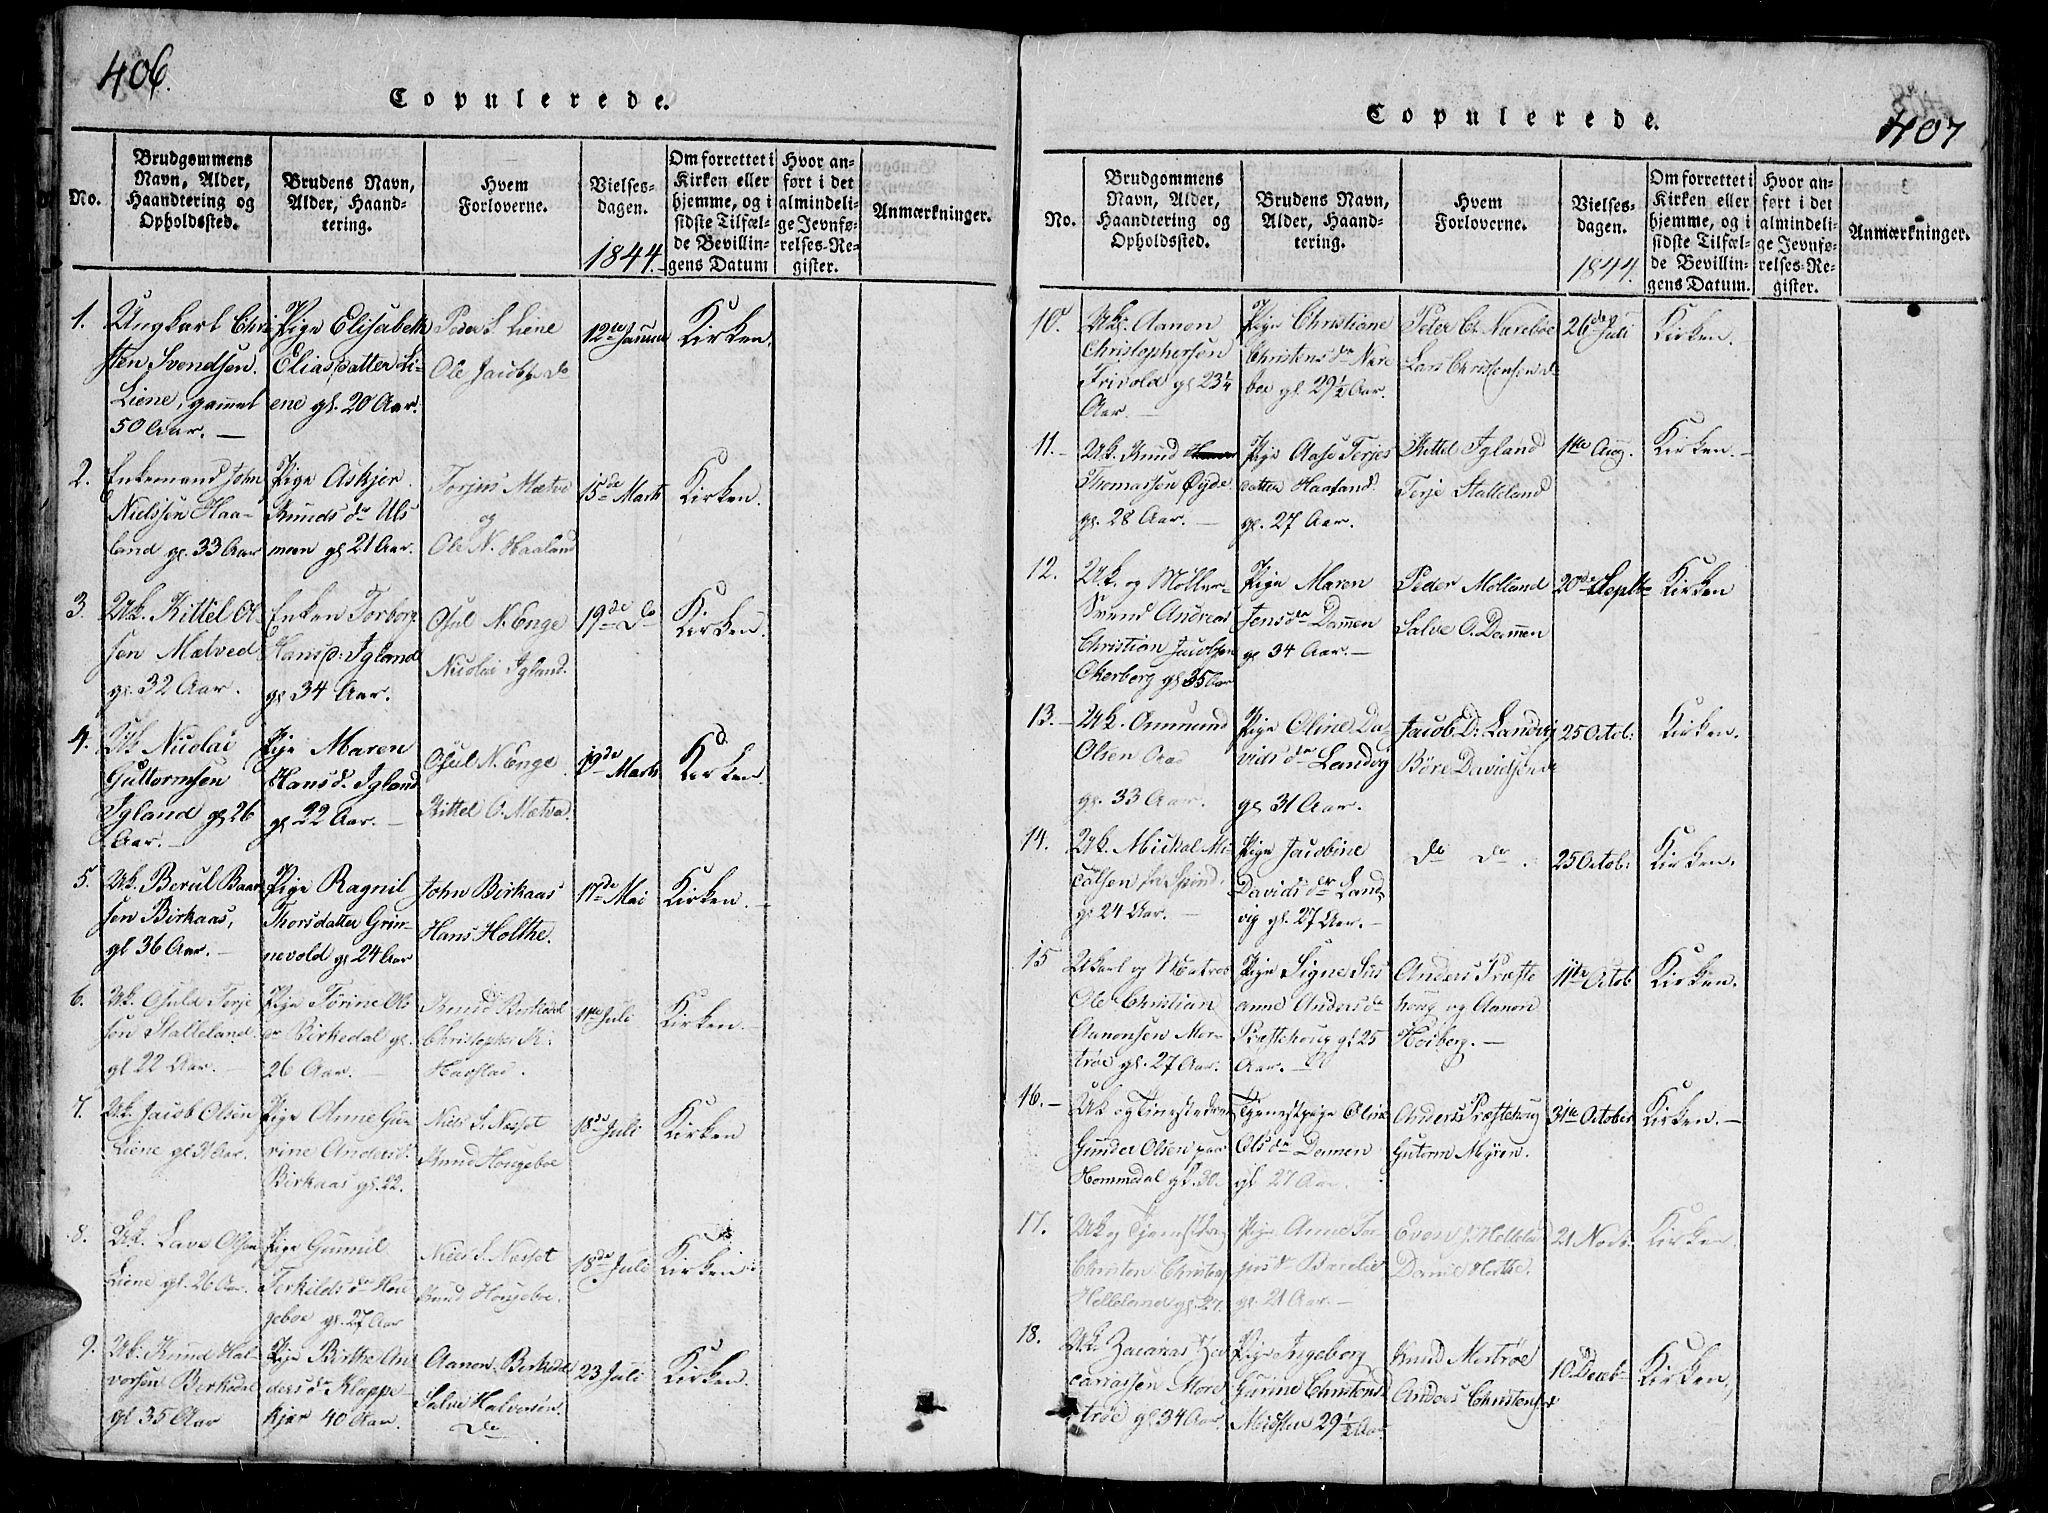 406.
Copulerede.
No.
Brudgommens
Navn, Alder,
Haandtering og
Opholdssted.
Brudens Navn,
Alder, Haand-
tering.
Hvem
Forloverne.
Vielses-
dagen.
1844.
Om forrettet i
Kirken eller
hjemme, og i
sidste Tilfæl-
de Bevillin-
gens Datum
Hvor an-
ført i det
almindeli-
ge Jevnfø-
relses-Re-
gister.
Anmærkninger.
1.
Ungkarl Chri
sten Svendsen.
Liene, gammel
50 Aar. —
Pige Elisabeth
Eliasdatter Li-
ene gl. 20 Aar.
Peder S. Liene
Ole Jacobs. do
12te Januar
Kirken.
2.
Enkemand John
Nielssen Haa-
land gl. 33 Aar
Pige Askjer
Knuds dr Uls
moen gl 21 Aar.
Torjus Mætve
og
Ole N. Haaland
15de Marts
Kirken.
3.
Uk. Kittel O
sen Mætved
gl. 32 Aar.
Enken Torborg
Hans d: Igland
gl 34 Aar.
Osul N. Enge
Nicolai Igland.
19de do
Kirken.
4.
Uk Nicolai
Guttormsen
Igland gl 26
Aar. —
Pige Maren
Hans d. Igland
gl 22 Aar. —
Osul N. Enge
Kittel O. Mætve.
19de Marts
Kirken.
5.
Uk. Berul Baar
sen Birkaas,
gl 36 Aar. —
Pige Ragnil
Thorsdatter Grin-
nevold gl 24 Aar
John Birkaas
Hans Holthe.
17de Mai
Kirken.
6.
Uk. Osuld Terje
sen Stalleland
gl 22 Aar. —
Pige Torine Ols
dr Birkedal gl.
26 Aar. —
Knud Birkedal
Christopher K.
Havstad.
11te Juli
Kirken.
7.
Uk. Jacob Olsen
Liene gl 31 Aar.
Pige Anne Gu-
rine Anders d.
Birkaas gl. 22.
Niels S. Næsset
Knud Hougeboe
18de Juli
Kirken
8.
Uk. Lave Olsen
Liene gl. 26 Aar.
Pige Gunnil
Terkilds dr Hou
geboe gl. 27 Aar
Niels S. Næsset
Knud Hougeboe.
18de Juli
Kirken
9.
Uk. Knud Hal-
vorsen Berkedal
gl 35 Aar
Pige Birthe An
ders dr Klappe-
kjær 40 Aar.
Aanon Berkedal
Salve Halvorsen.
do
23 Juli
Kirken.
407
Copulerede.
No.
Brudgommens
Navn, Alder,
Haandtering og
Opholdssted.
Brudens Navn,
Alder, Haand-
tering.
Hvem
Forloverne.
Vielses-
dagen.
1844.
Om forrettet i
Kirken eller
hjemme, og i
sidste Tilfæl-
de Bevillin-
gens Datum.
Hvor an-
ført i det
almindeli-
ge Jevnfø-
relses-Re-
gister.
Anmærkninger.
10.
Uk. Aanon
Christophersen
Trivold gl 23¼
Aar. —
Pige Christiane
Christens dr Nare
boe gl. 29½ Aar.
Peter Ch. Nareboe
Lars Christensen do
26de Juli
Kirken.
11.
Uk. Knud
Thomassen Øyde
gl. 28 Aar. —
Pige Aase Terjes
datter Haaland
gl. 27 Aar.
Kittel Igland
Terje Stalleland
1ste Aug.
Kirken. —
12.
Uk. og Møller
Svend Andreas
Christian Jacobsen
Okerberg gl 35 Aar
Pige Maren
Jens dr Dammen
gl 34 Aar. —
Peder Molland
Salve O. Dammen
20de Septbr
Kirken
13.
Uk. Ommund
Olsen Aas
gl. 33 Aar.
Pige Oline Da-
vids dr Landvig
gl 31 Aar.
Jacob D. Landvig
Børe Davidsen do
25 Octob:
Kirken.
14.
Uk. Mickal Mi-
calsen
gl 24 Aar. —
Pige Jacobine
Davids dr Land-
vig gl. 27 Aar. —
do do.
25 Octob:
Kirken.
15
Ukarl og Matros
Ole Christian
Aanonsen Mor-
trøe gl. 27 Aar.
Pige Signe Sus
anne Anders dr
Præstehoug gl 25
Aar. —
Anders Præste
houg og Aanon
Høiberg. —
11te Octob
Kirken.
16. —
Uk og Tjenestedreng
Gunder Olsen paa
Hommedal gl. 30.
Tjenestpige Oline
Ols dr Dammen
gl 27 Aar.
Anders Præstehoug
Gutorm Myren.
31te October
Kirken. —
17.
Uk og Tjenstdreng
Christen Christens
Helleland gl. 27.
Pige Anne Tor
jus dr Barelie
gl. 21 Aar. —
Even Helleland
Daniel Holthe.
21 Nov.
Kirken.
18.
Uk. Zacarias Za
cariassen More
trøe gl 34 Aar.
Pige Ingeborg
Gurine Christens d
Molstue 29½ Aar
Knud Mortrøe
Anders Christensen
10. Decbr
Kirken.